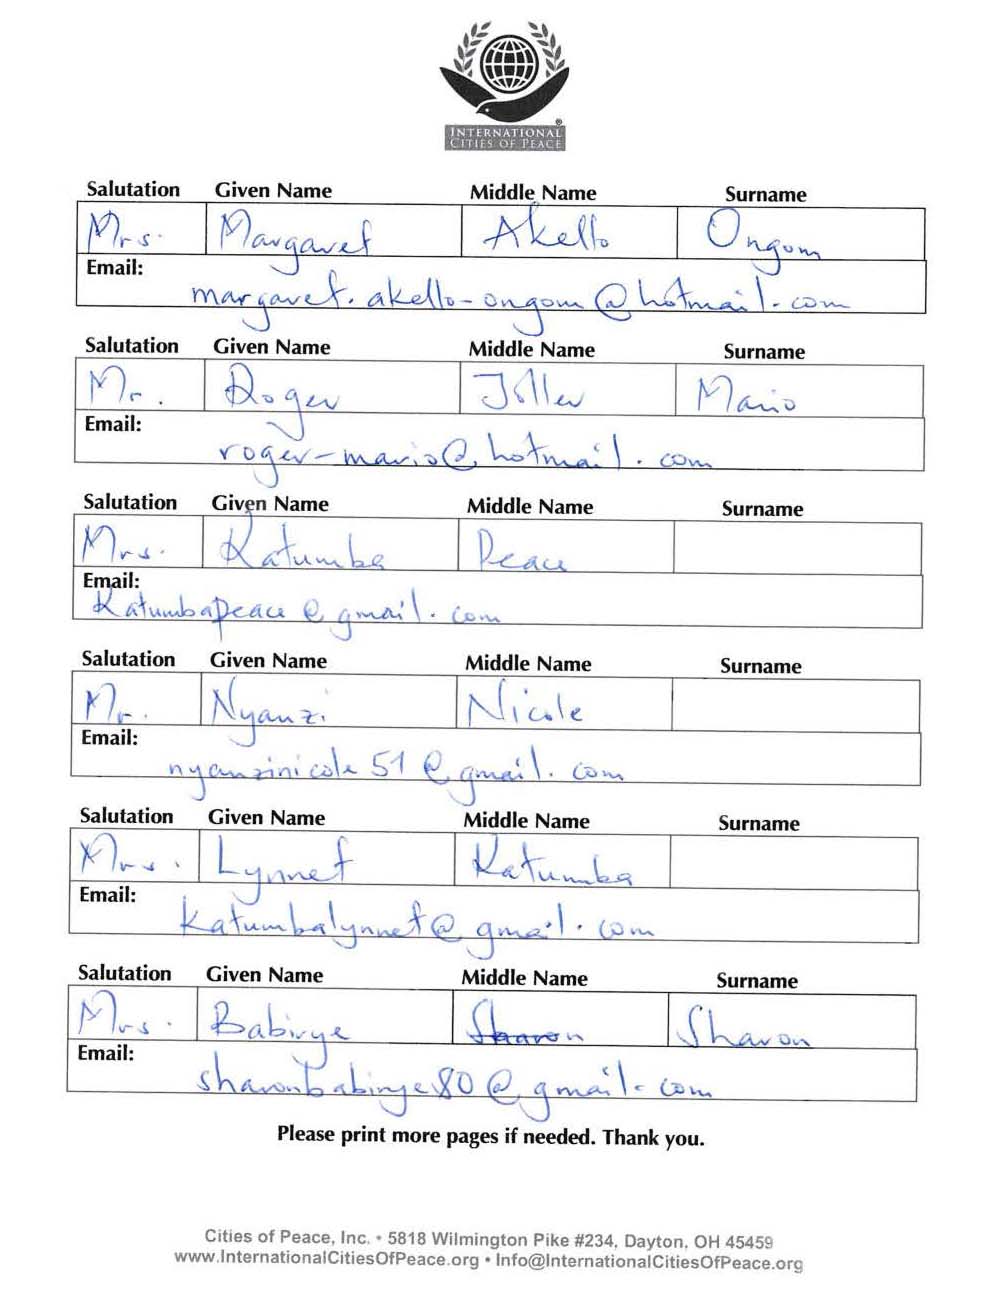 INTERNATIONAL
CITIES OF PEACE
Salutation Given Name Middle Name Surname
Mrs. Margaret Akello Ongom
Email:
margaret.akello-ongom@hotmail.com
Salutation Given Name Middle Name Surname
Mr. Roger Joller Mario
Email:
roger-mario@hotmail.com
Salutation Given Name Middle Name Surname
Mrs. Katumba Peace
Email:
Katumbapeace@gmail.com
Salutation Given Name Middle Name Surname
Mr. Nyanzi Nicole
Email:
nyanzinicole51@gmail.com
Salutation Given Name Middle Name Surname
Mrs. Lynnet Katumba
Email:
katumbalynnet@gmail.com
Salutation Given Name Middle Name Surname
Mrs. Babirye Sharon Sharon
Email:
sharonbabirye80@gmail.com
Please print more pages if needed. Thank you.
Cities of Peace, Inc. • 5818 Wilmington Pike #234, Dayton, OH 45459
www.InternationalCitiesOfPeace.org • Info@InternationalCitiesOfPeace.org